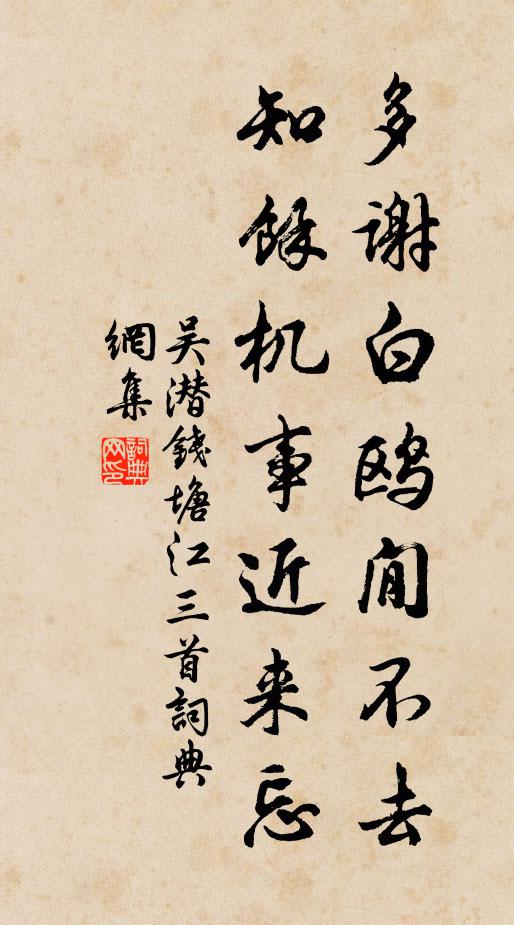 多谢白鸥闲不去
知餘机事近来忘
吴潜錢塘江三首詞典
網集
詞典
网印